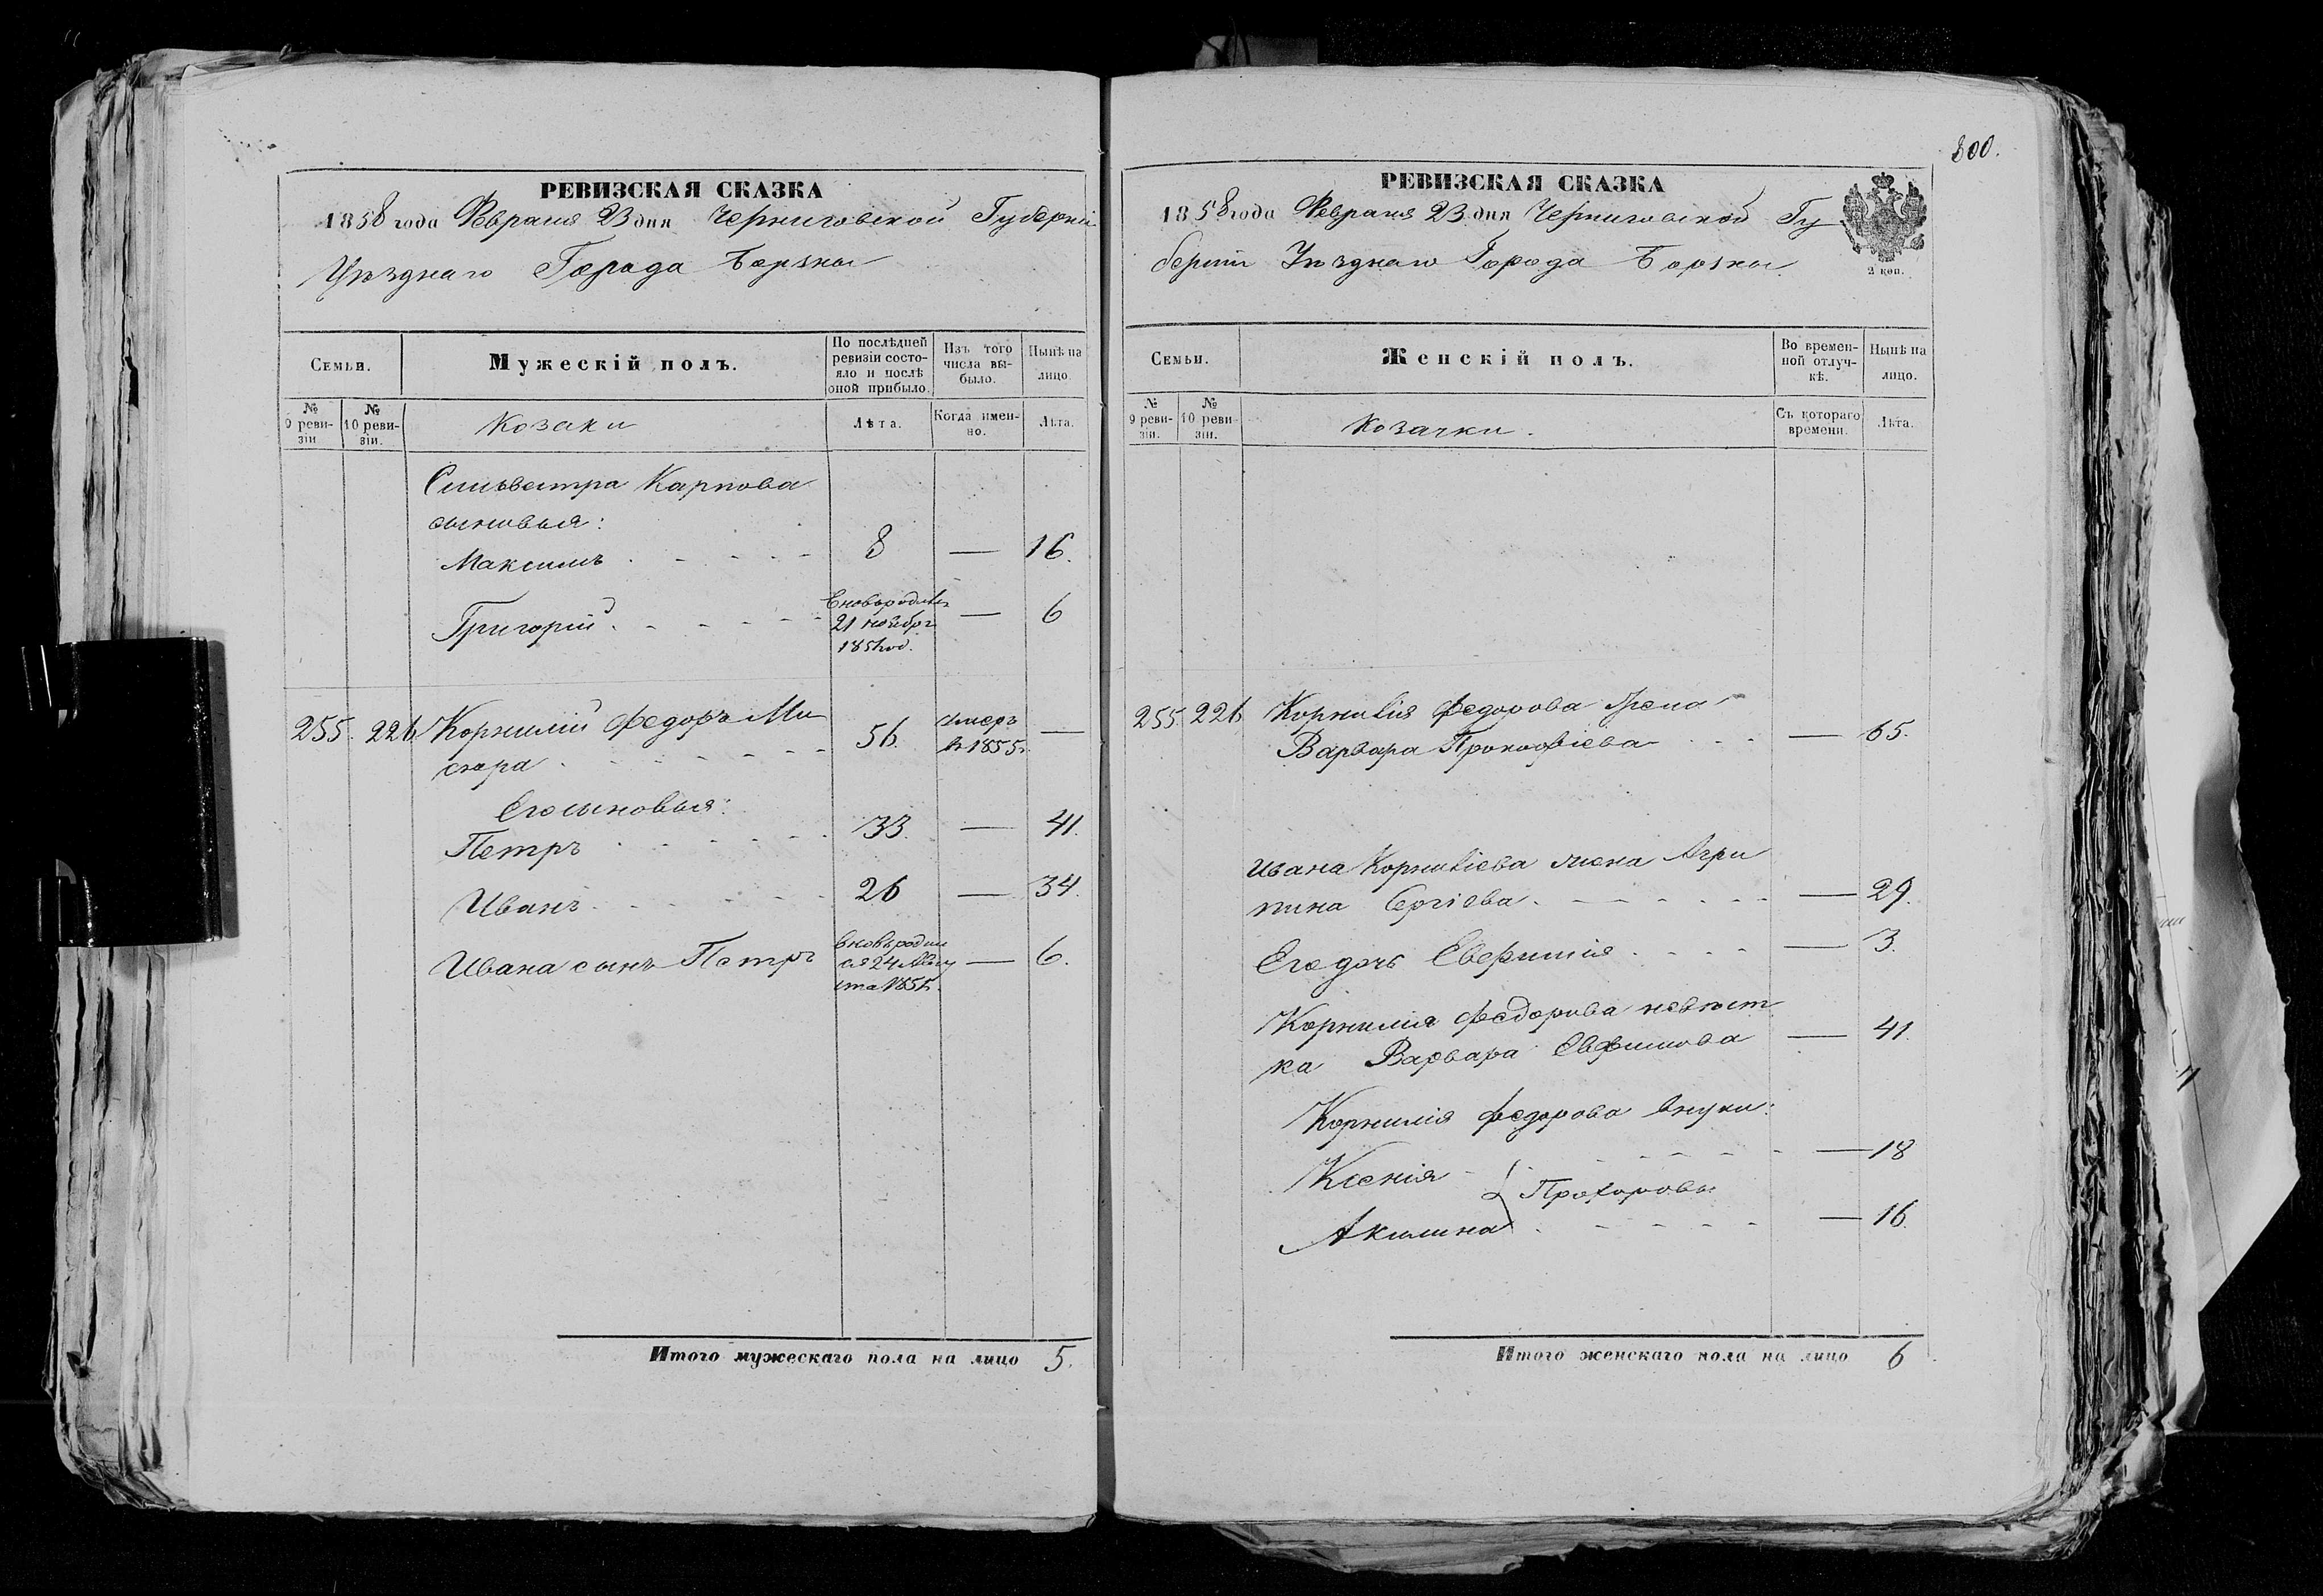 РЕВИЗСКАЯ СКАЗКА
1858 года Февраля 23 дня Черниговской Губерніи
Уѣзднаго Города Борзны
Семьи.
Мужескій полъ.
По послѣдней ревизіи состояло и послѣ оной прибыло.
Изъ того числа выбыло.
Нынѣ на лицо.
№ 9 ревизіи.
№ 10 ревизіи.
Козаки
Лѣта.
Когда именно.
Лѣта.
Сильвестра Карпова
сыновья:
Максимъ 8 — 16.
Григорій вновьродился 21 ноябр — 6
255. 226 Корнилій Федоръ Ми 56. умеръ въ 1855 г. —
Его сыновья:
Петръ 33. — 41.
Иванъ 26 — 34.
Ивана сынъ Петръ вновьродился 24 Августа — 6.
Итого мужескаго пола на лицо 5.
800.
РЕВИЗСКАЯ СКАЗКА
1858 года Февраля 23 дня Черниговской Гу
берніи Уѣзднаго Города Борзны.
2 коп.
Семьи.
Женскій полъ.
Во временной отлучкѣ.
Нынѣ на лицо.
№ 9 ревизіи.
№ 10 ревизіи.
Козачки.
Съ котораго времени.
Лѣта.
255. 226 Корнилія Федорова жена
Варвара Прокофіева — 65.
Ивана Корниліева жена Агри
пина Сергіева — 29.
Его дочь Евфимія — 3.
Корнилія Федорова невѣст
ка Варвара Евфимова — 41.
Корнилія Федорова внуки:
Ксенія — 18
Прохоровы
Акилина — 16.
Итого женскаго пола на лицо 6